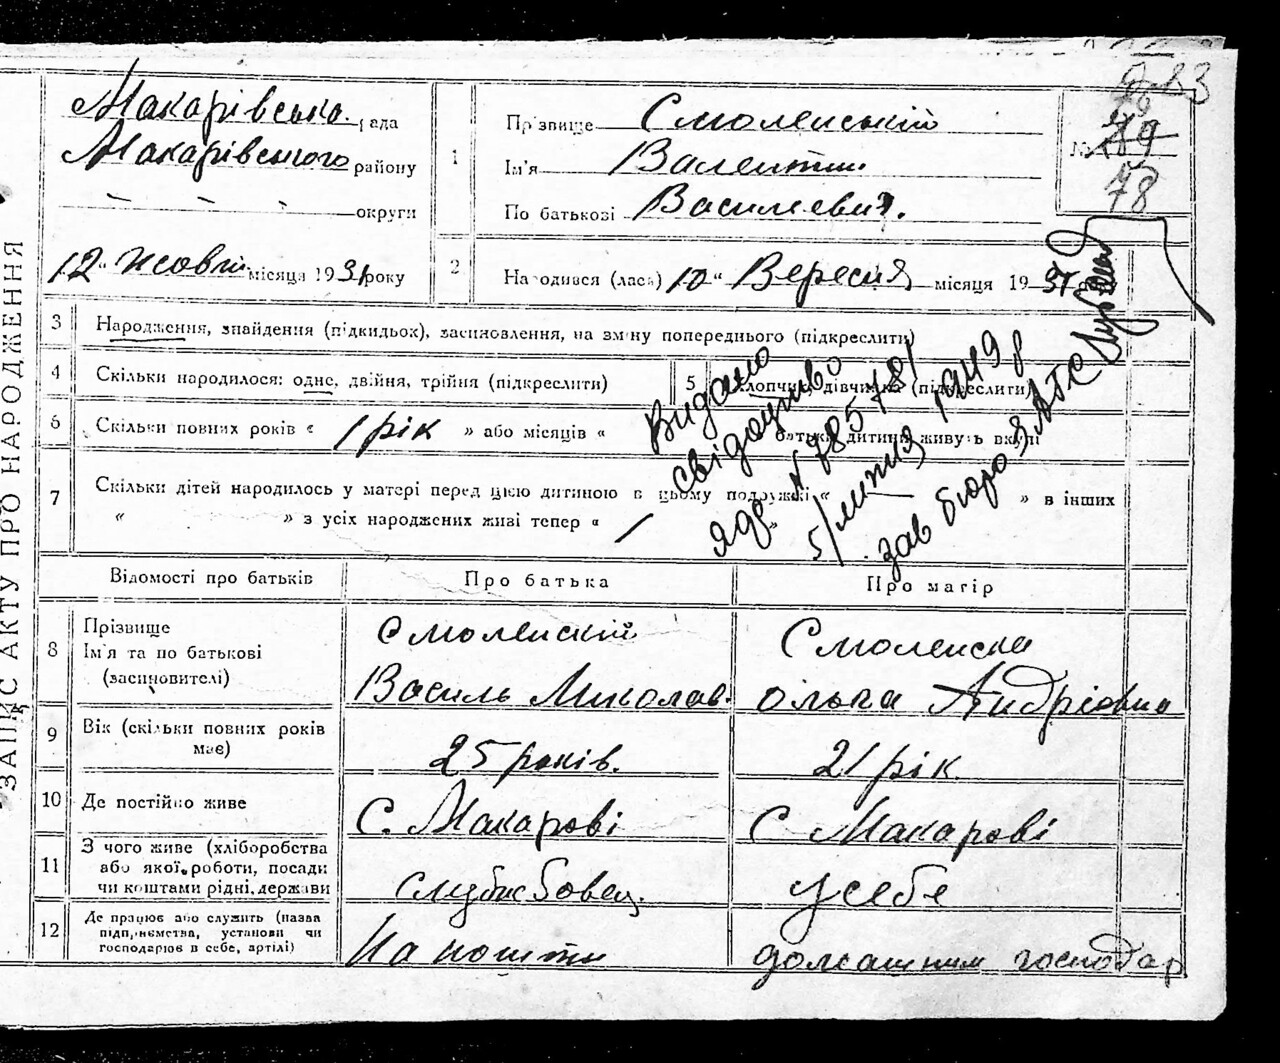 ЗАПИС АКТУ ПРО НАРОДЖЕННЯ
Макарівська рада
Макарівського району
округи
12 " жовтн місяця 1931 року
1
Прізвище Смоленський
Ім'я Валентин
По батькові Василевич.
№
78
2
Народився (лась) 10 " Вересня місяця 1931
3 Народження, знайдення (підкидьок), засиновлення, на зміну попереднього (підкреслити)
4 Скільки народилося: одне, двійня, трійня (підкреслити)
5 Хлопчик, дівчинка (підкреслити)
6 Скільки повних років « 1 рік » або місяців « батьки дитини живуть вкупі
7 Скільки дітей народилось у матері перед цією дитиною в цьому подружжі « — » в інших
« » з усіх народжених живі тепер « —
Видано
свідоцтво
ЯЦР № 785781
5/липня 1949 р
зав бюро ЗАГС
Відомості про батьків Про батька Про матір
8 Прізвище
Ім'я та по батькові
(засиновителі)
Смоленский
Василь Миколав.
Смоленска
Ольга Андрієвна
9 Вік (скільки повних років
має)
25 років.
21 рік.
10 Де постійно живе С. Макарові С Макарові
11 З чого живе (хліборобства
або якої роботи, посади
чи коштами рідні, держави
службовец.
У себе
12 Де працює або служить (назва
підприємства, установи чи
господарює в себе, артілі)
На пошти
домашним господар